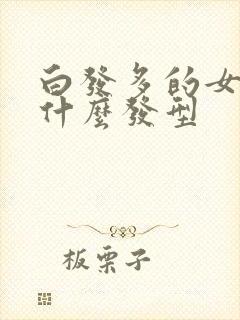 白發多的女
什麼發型
板栗子